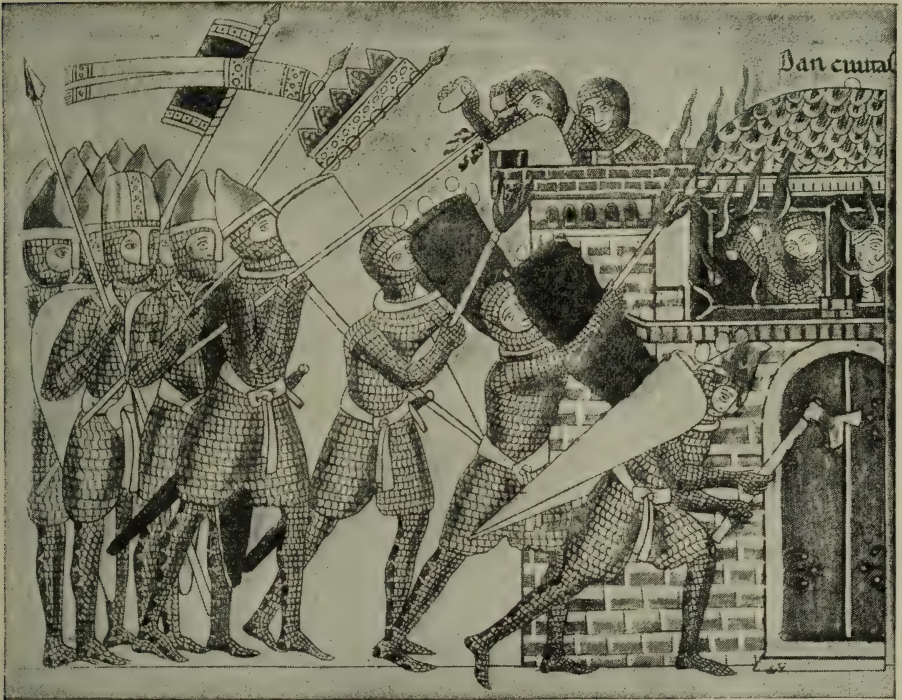 Dan ciuitas